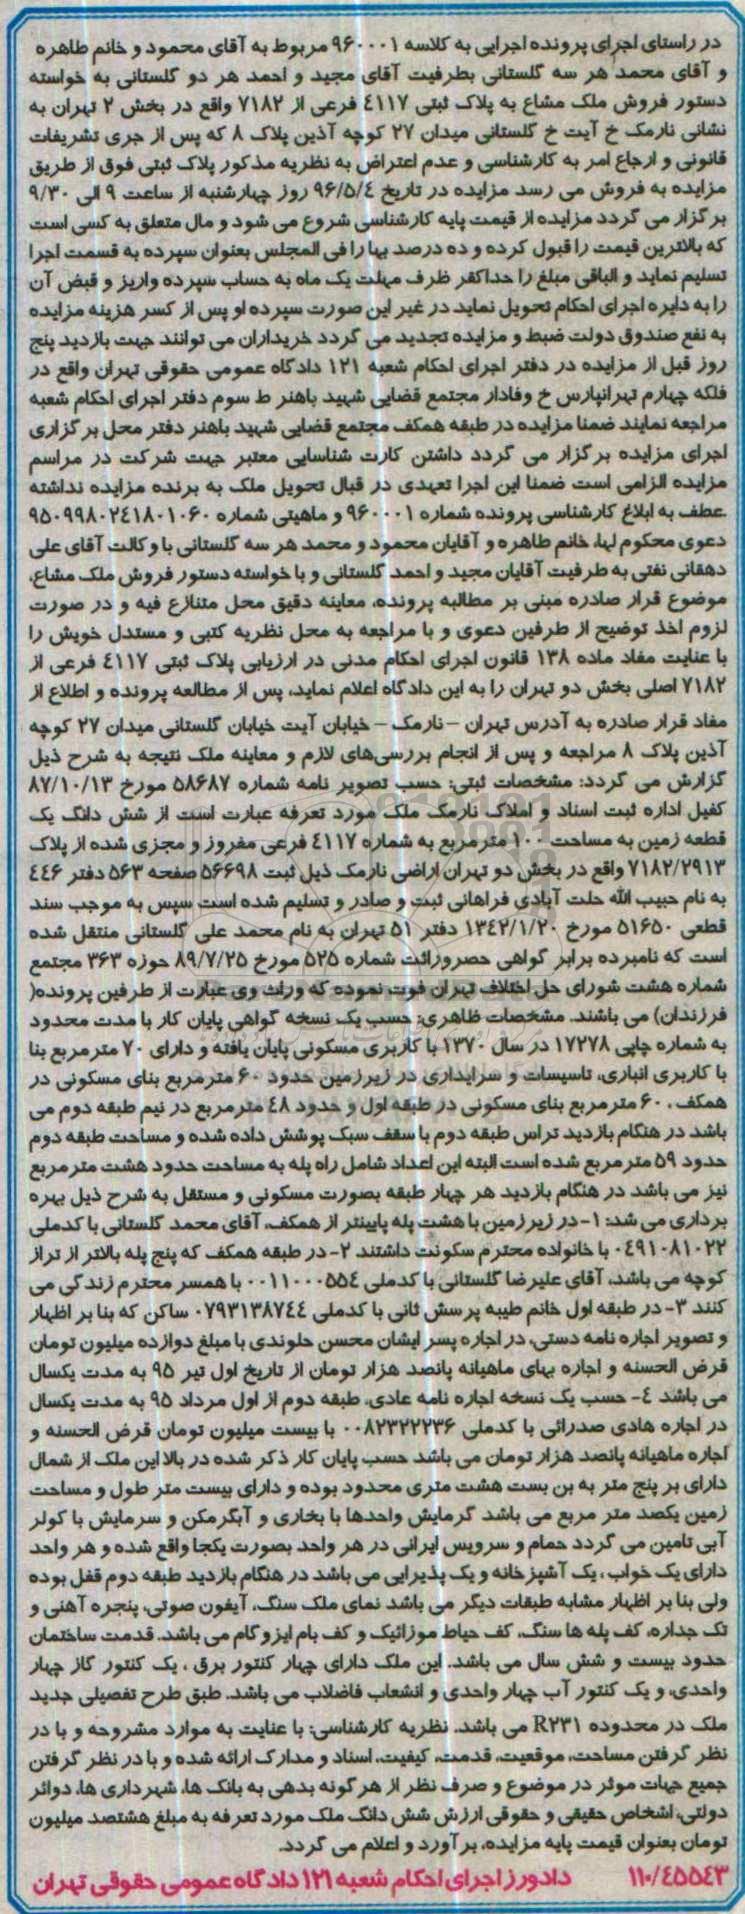 در راستای اجرای پرونده اجرایی به کلاسه ۹۶۰۰۰۱ مربوط به آقای محمود و خانم طاهره
و آقای محمد هر سه گلستانی بطرفیت آقای مجید و احمد هر دو گلستانی به خواسته
دستور فروش ملک مشاع به پلاک ثبتی ٤١١٧ فرعی از ۷۱۸۲ واقع در بخش ۲ تهران به
نشانی نارمک خ آیت خ گلستانی میدان ۲۷ کوچه آذین پلاک ۸ که پس از جری تشریفات
قانونی و ارجاع امر به کارشناسی و عدم اعتراض به نظریه مذکور پلاک ثبتی فوق از طریق
مزایده به فروش می رسد مزایده در تاریخ ۹۶/۵/٤ روز چهارشنبه از ساعت ۹ الی ۹/۳۰
برگزار می گردد مزایده از قیمت پایه کارشناسی شروع می شود و مال متعلق به کسی است
که بالاترین قیمت را قبول کرده و ده درصد بها را فی المجلس بعنوان سپرده به قسمت اجرا
تسلیم نماید و الباقی مبلغ را حداکثر ظرف مهلت یک ماه به حساب سپرده واریز و قبض آن
را به دایره اجرای احکام تحویل نماید در غیر این صورت سپرده او پس از کسر هزینه مزایده
به نفع صندوق دولت ضبط و مزایده تجدید می گردد خریداران می توانند جهت بازدید پنج
روز قبل از مزایده در دفتر اجرای احکام شعبه ۱۲۱ دادگاه عمومی حقوقی تهران واقع در
فلکه چهارم تهرانپارس خ وفادار مجتمع قضایی شهید باهنر ط سوم دفتر اجرای احکام شعبه
مراجعه نمایند ضمنا مزایده در طبقه همکف مجتمع قضایی شهید باهنر دفتر محل برگزاری
اجرای مزایده برگزار می گردد داشتن کارت شناسایی معتبر جهت شرکت در مراسم
مزایده الزامی است ضمنا این اجرا تعهدی در قبال تحویل ملک به برنده مزایده نداشته
عطف به ابلاغ کارشناسی پرونده شماره ۹۶۰۰۰۱ و ماهیتی شماره ۹۵۰۹۹۸۰۲٤۱۸۰۱۰۶۰
دعوی محکوم لها، خانم طاهره و آقایان محمود و محمد هر سه گلستانی با وکالت آقای علی
دهقانی نفتی به طرفیت آقایان مجید و احمد گلستانی و با خواسته دستور فروش ملک مشاع،
موضوع قرار صادره مبنی بر مطالبه پرونده، معاینه دقیق محل متنازع فیه و در صورت
لزوم اخذ توضیح از طرفین دعوی و با مراجعه به محل نظریه کتبی و مستدل خویش را
با عنایت مفاد ماده ۱۳۸ قانون اجرای احکام مدنی در ارزیابی پلاک ثبتی ٤١١٧ فرعی از
۷۱۸۲ اصلی بخش دو تهران را به این دادگاه اعلام نماید، پس از مطالعه پرونده و اطلاع از
مفاد قرار صادره به آدرس تهران – نارمک – خیابان آیت خیابان گلستانی میدان ۲۷ کوچه
آذین پلاک ۸ مراجعه و پس از انجام بررسی‌های لازم و معاینه ملک نتیجه به شرح ذیل
گزارش می گردد: مشخصات ثبتی: حسب تصویر نامه شماره ۵۸۶۸۷ مورخ ۸۷/۱۰/۱۳
کفیل اداره ثبت اسناد و املاک نارمک ملک مورد تعرفه عبارت است از شش دانگ یک
قطعه زمین به مساحت ۱۰۰ مترمربع به شماره ٤١١٧ فرعی مفروز و مجزی شده از پلاک
۷۱۸۲/۲۹۱۳ واقع در بخش دو تهران اراضی نارمک ذیل ثبت ۵۶۶۹۸ صفحه ۵۶۳ دفتر ٤٤۶
به نام حبیب الله حلت آبادی فراهانی ثبت و صادر و تسلیم شده است سپس به موجب سند
قطعی ۵۱۶۵۰ مورخ ۱۳٤۲/۱/۲۰ دفتر ۵۱ تهران به نام محمد علی گلستانی منتقل شده
است که نامبرده برابر گواهی حصروراثت شماره ۵۲۵ مورخ ۸۹/۷/۲۵ حوزه ۳۶۳ مجتمع
شماره هشت شورای حل اختلاف تهران فوت نموده که وراث وی عبارت از طرفین پرونده(
فرزندان) می باشند. مشخصات ظاهری: حسب یک نسخه گواهی پایان کار با مدت محدود
به شماره چاپی ۱۷۲۷۸ در سال ۱۳۷۰ با کاربری مسکونی پایان یافته و دارای ۷۰ مترمربع بنا
با کاربری انباری، تاسیسات و سرایداری در زیرزمین حدود ۶۰ مترمربع بنای مسکونی در
همکف ، ۶۰ مترمربع بنای مسکونی در طبقه اول و حدود ٤۸ مترمربع در نیم طبقه دوم می
باشد در هنگام بازدید تراس طبقه دوم با سقف سبک پوشش داده شده و مساحت طبقه دوم
حدود ۵۹ مترمربع شده است البته این اعداد شامل راه پله به مساحت حدود هشت مترمربع
نیز می باشد در هنگام بازدید هر چهار طبقه بصورت مسکونی و مستقل به شرح ذیل بهره
برداری می شد: ۱- در زیرزمین با هشت پله پایینتر از همکف، آقای محمد گلستانی با کدملی
۰٤۹۱۰۸۱۰۲۲ با خانواده محترم سکونت داشتند ۲- در طبقه همکف که پنج پله بالاتر از تراز
کوچه می باشد، آقای علیرضا گلستانی با کدملی ۰۰۱۱۰۰۰۵۵٤ با همسر محترم زندگی می
کنند ۳- در طبقه اول خانم طیبه پرسش ثانی با کدملی ۰۷۹۳۱۳۸۷٤٤ ساکن که بنا بر اظهار
و تصویر اجاره نامه دستی، در اجاره پسر ایشان محسن حلوندی با مبلغ دوازده میلیون تومان
قرض الحسنه و اجاره بهای ماهیانه پانصد هزار تومان از تاریخ اول تیر ۹۵ به مدت یکسال
می باشد ٤- حسب یک نسخه اجاره نامه عادی، طبقه دوم از اول مرداد ۹۵ به مدت یکسال
در اجاره هادی صدرائی با کدملی ۰۰۸۲۳۲۲۲۳۶ با بیست میلیون تومان قرض الحسنه و
اجاره ماهیانه پانصد هزار تومان می باشد حسب پایان کار ذکر شده در بالا این ملک از شمال
دارای بر پنج متر به بن بست هشت متری محدود بوده و دارای بیست متر طول و مساحت
زمین یکصد متر مربع می باشد گرمایش واحدها با بخاری و آبگرمکن و سرمایش با کولر
آبی تامین می گردد حمام و سرویس ایرانی در هر واحد بصورت یکجا واقع شده و هر واحد
دارای یک خواب ، یک آشپزخانه و یک پذیرایی می باشد در هنگام بازدید طبقه دوم قفل بوده
ولی بنا بر اظهار مشابه طبقات دیگر می باشد نمای ملک سنگ، آیفون صوتی، پنجره آهنی و
تک جداره، کف پله ها سنگ، کف حیاط موزائیک و کف بام ایزوگام می باشد. قدمت ساختمان
حدود بیست و شش سال می باشد. این ملک دارای چهار کنتور برق ، یک کنتور گاز چهار
واحدی، و یک کنتور آب چهار واحدی و انشعاب فاضلاب می باشد. طبق طرح تفصیلی جدید
ملک در محدوده R۲۳۱ می باشد. نظریه کارشناسی: با عنایت به موارد مشروحه و با در
نظر گرفتن مساحت، موقعیت، قدمت، کیفیت، اسناد و مدارک ارائه شده و با در نظر گرفتن
جمیع جهات موثر در موضوع و صرف نظر از هرگونه بدهی به بانک ها، شهرداری ها، دوائر
دولتی، اشخاص حقیقی و حقوقی ارزش شش دانگ ملک مورد تعرفه به مبلغ هشتصد میلیون
تومان بعنوان قیمت پایه مزایده، برآورد و اعلام می گردد.
۱۱۰/٤۵۵٤۳ دادورز اجرای احکام شعبه ۱۲۱ دادگاه عمومی حقوقی تهران